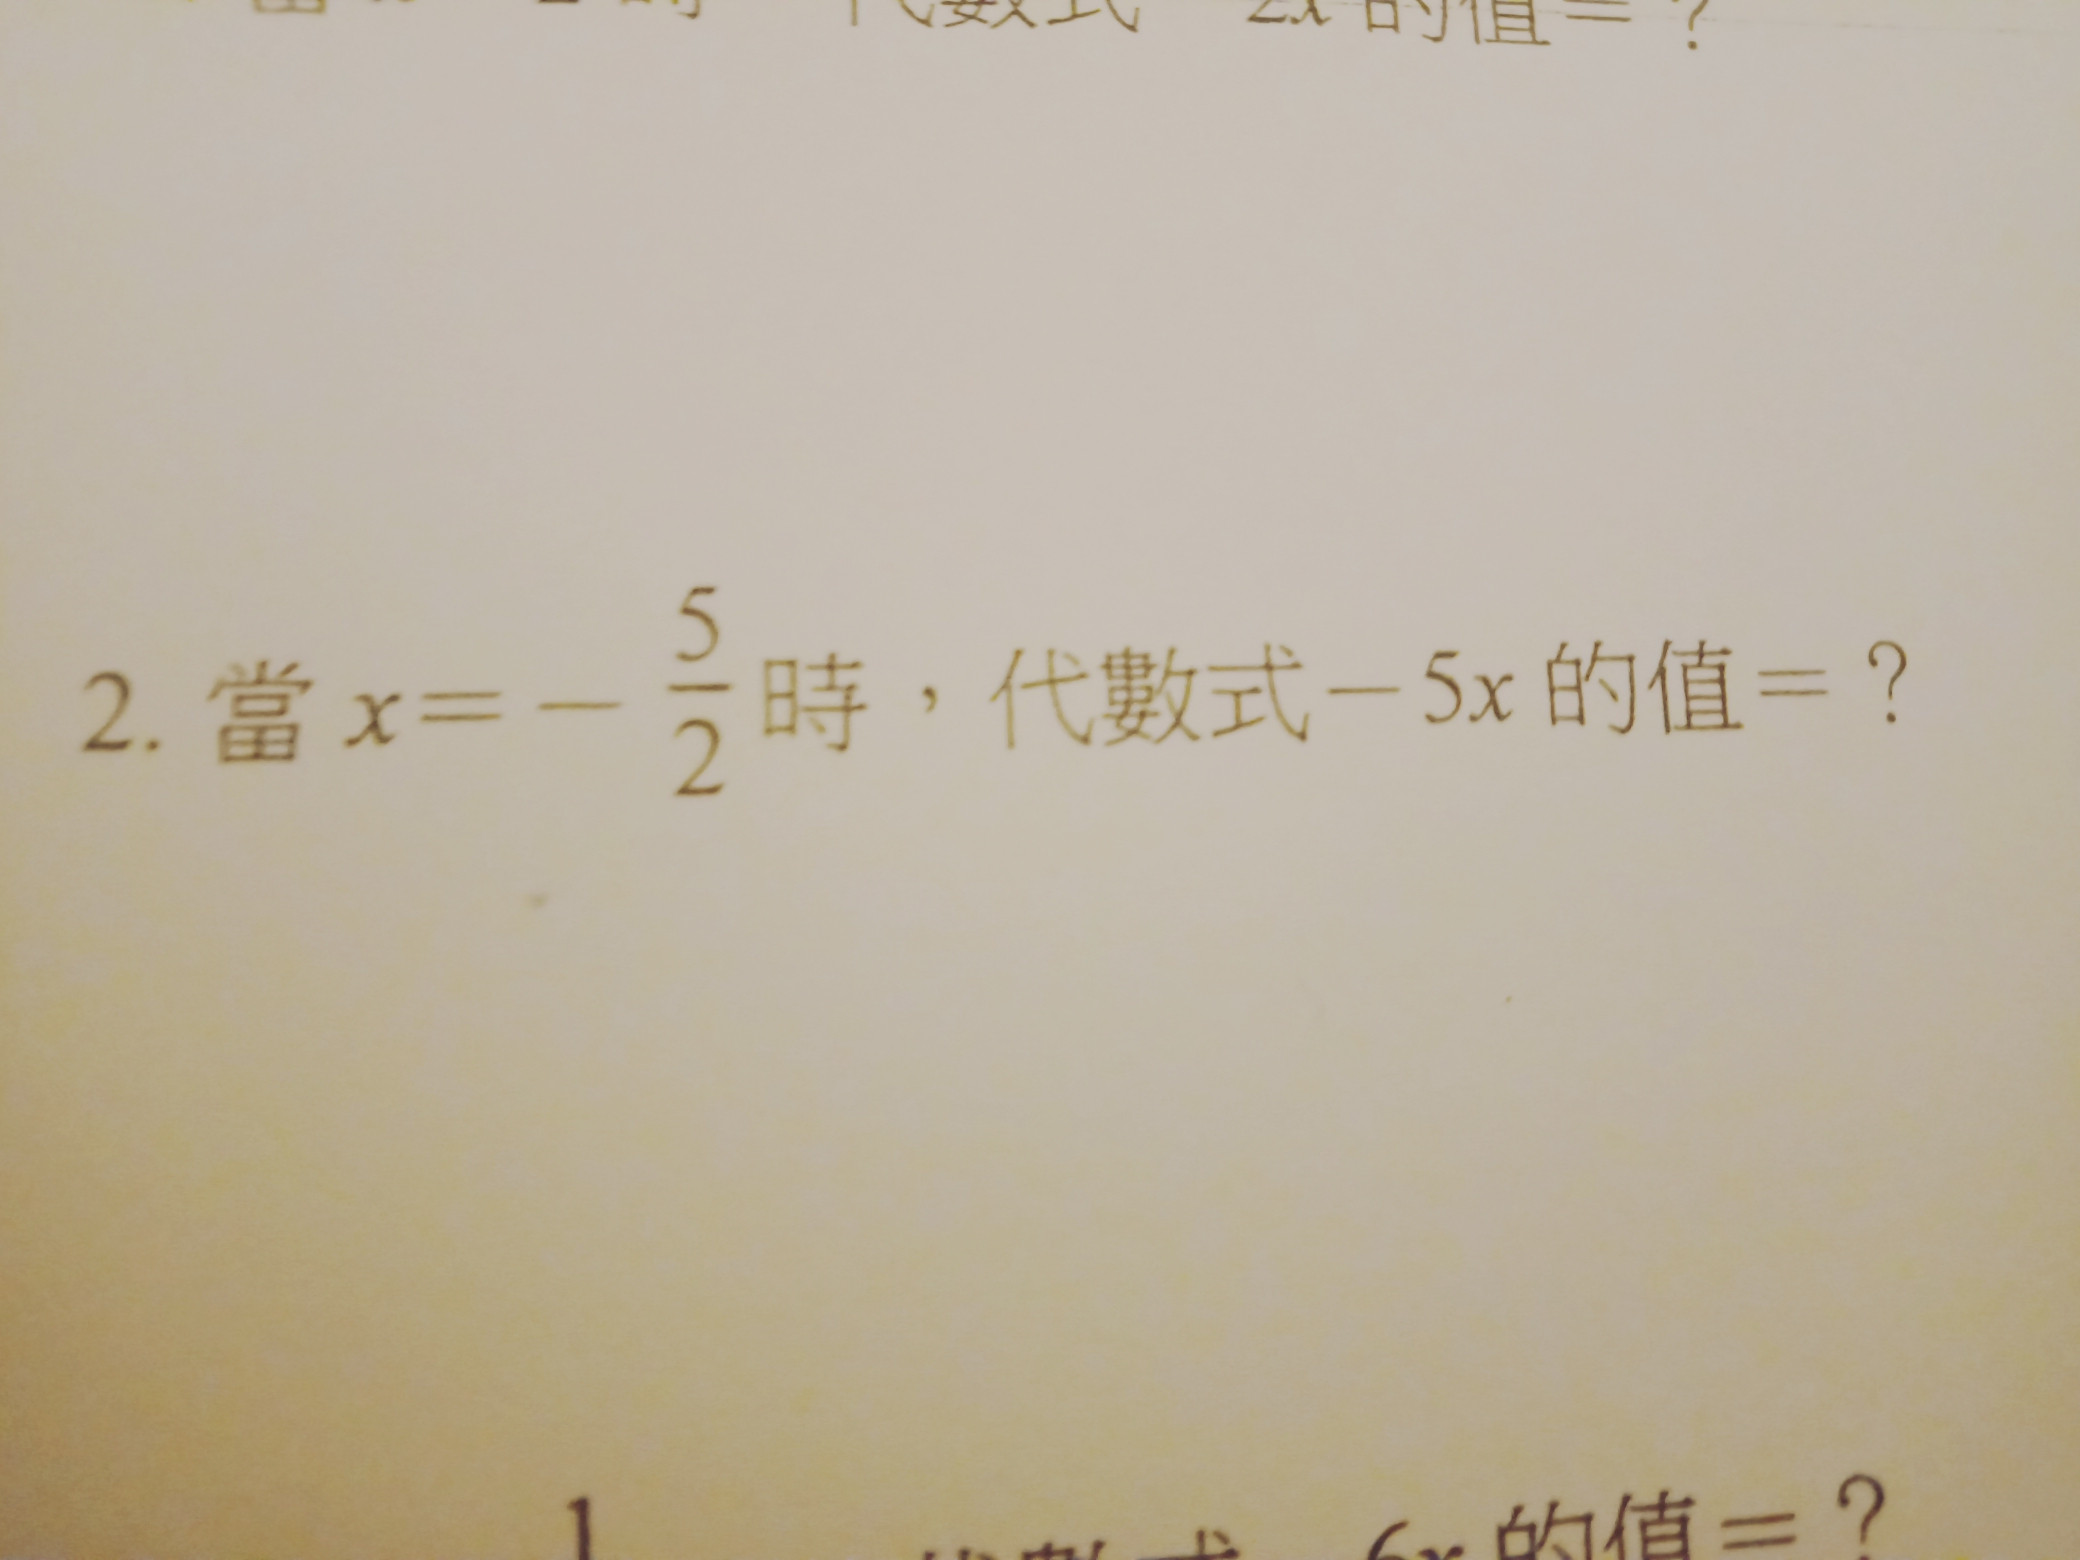 當 2 時 代數式 2x 的值=？
2. 當 x=－5/2 時，代數式－5x 的值=？
1 代數式 6x 的值=？